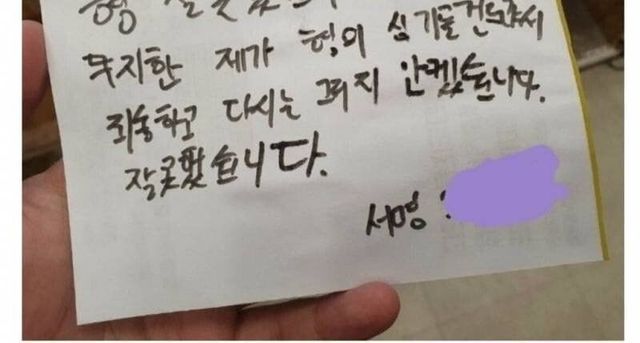 형 잘못했
무지한 제가 형의 심기를 건드려서
죄송하고 다시는 그러지 안켔습니다.
잘못했습니다.
서명 :